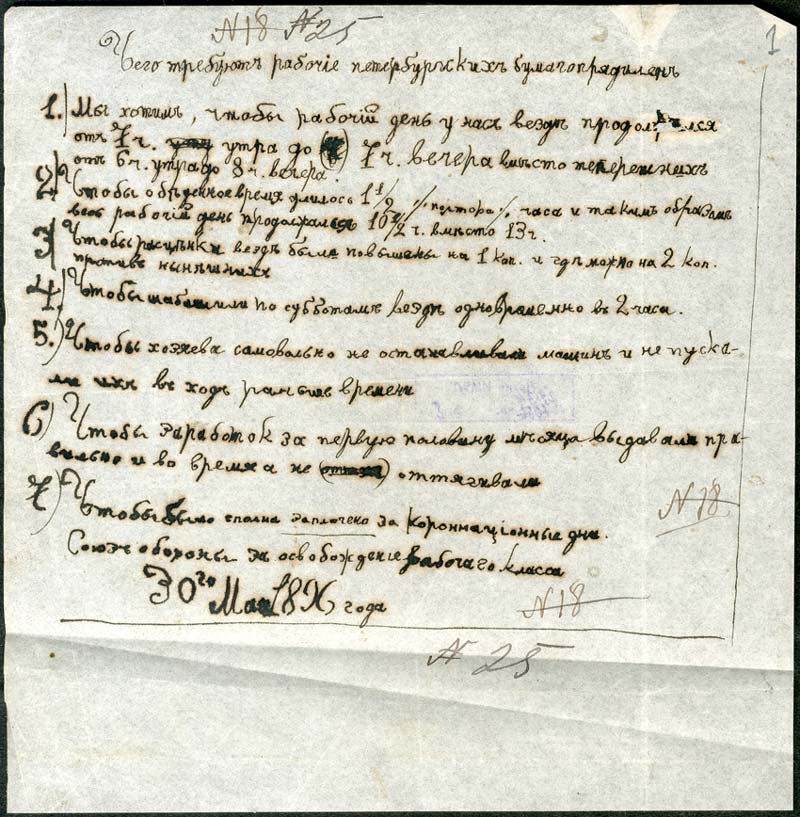 N18 N25
1
Чего требуютъ рабочіе петербургскихъ бумагопрядиленъ
1. Мы хотимъ, чтобы рабочій день у насъ вездѣ продолжался
отъ 7 ч. утра до 7 ч. вечера вмѣсто теперешнихъ
отъ 6 ч. утра до 8 ч. вечера.
2) Чтобы обѣденное время длилось 1 1/2 /полтора/ часа и такимъ образомъ
весь рабочій день продолжался 10 1/2 ч. вмѣсто 13 ч.
3) Чтобы расцѣнки вездѣ были повышены на 1 коп. и гдѣ можно на 2 коп.
противъ нынѣшнихъ
4) Чтобы шабашили по субботамъ вездѣ одновременно въ 2 часа.
5.) Чтобы хозяева самовольно не останавливали машинъ и не пуска-
ли ихъ въ ходъ раньше времени
6) Чтобы заработок за первую половину мѣсяца выдавали пра-
вильно и во время а не оттягивали
7) Чтобы было сполна заплочено за коронаціонные дни.
Союзъ обороны за освобожденіе рабочаго класса
30го Мая 189 года
N18
N18
N 25